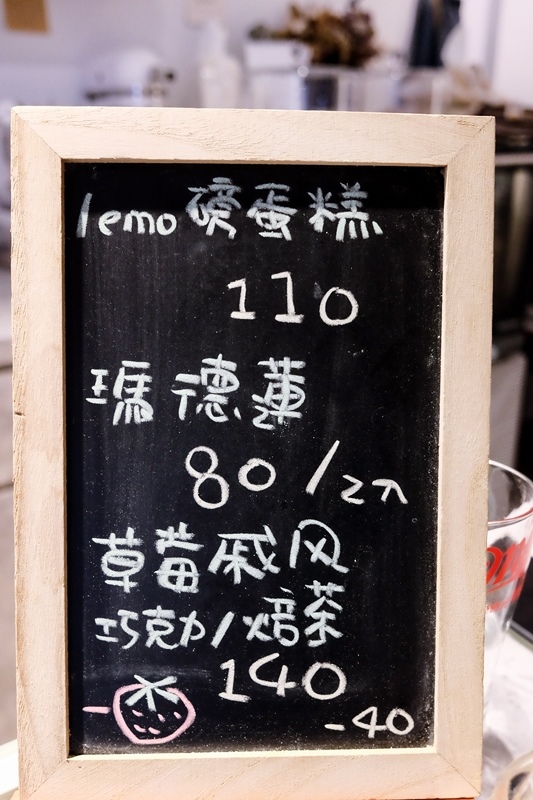 lemo磅蛋糕
110
瑪德蓮
80/2入
草莓戚风
巧克力/焙茶
140
-40